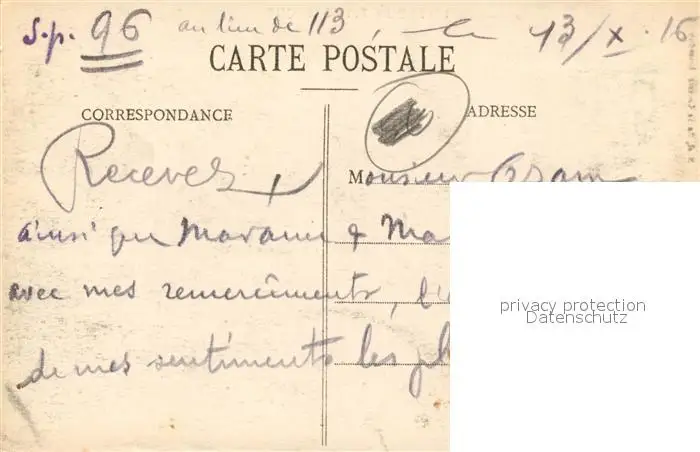 S.p. 96 au lieu de 113, le 13/X.16
CARTE POSTALE
CORRESPONDANCE ADRESSE
Recevez, Monsieur
ainsi que Madame & Ma
avec mes remerciments, l'
de mes sentiments les pl
privacy protection
Datenschutz